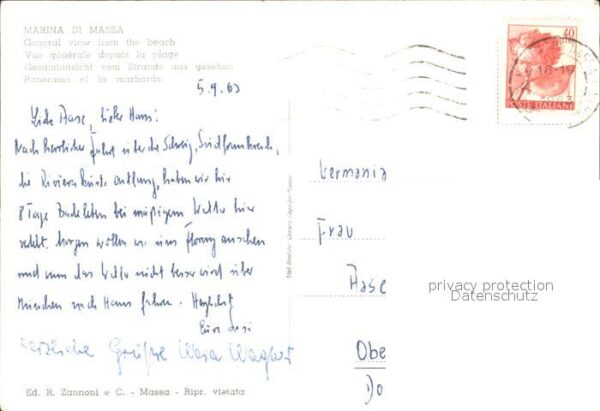 MARINA DI MASSA
General view from the beach
Vue générale depuis la plage
Gesamtansicht vom Strande aus gesehen
Panorama el la marborde
5.9.63
Liebe Aase, lieber Hans!
Nach herrlicher Fahrt über die Schweiz, Südfrankreich,
die Riviera Küste entlang, haben wir hier
8 Tage Badeleben bei mäßigem Wetter hier
verlebt. Morgen wollen wir uns Florenz anschauen
und wenn das Wetter nicht besser wird über
München nach Haus fahren. Herzlichst
Eure
Herzliche Grüße
Germania
Frau
Aase
Obe
Do
40
18-19
POSTE ITALIANE
privacy protection
Datenschutz
Ed. R. Zannoni e C. - Massa - Ripr. vietata